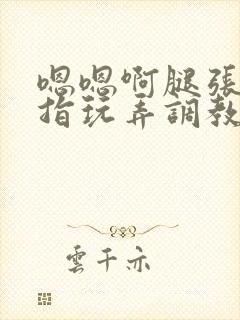 嗯嗯啊腿張
指玩弄調教
雲千亦